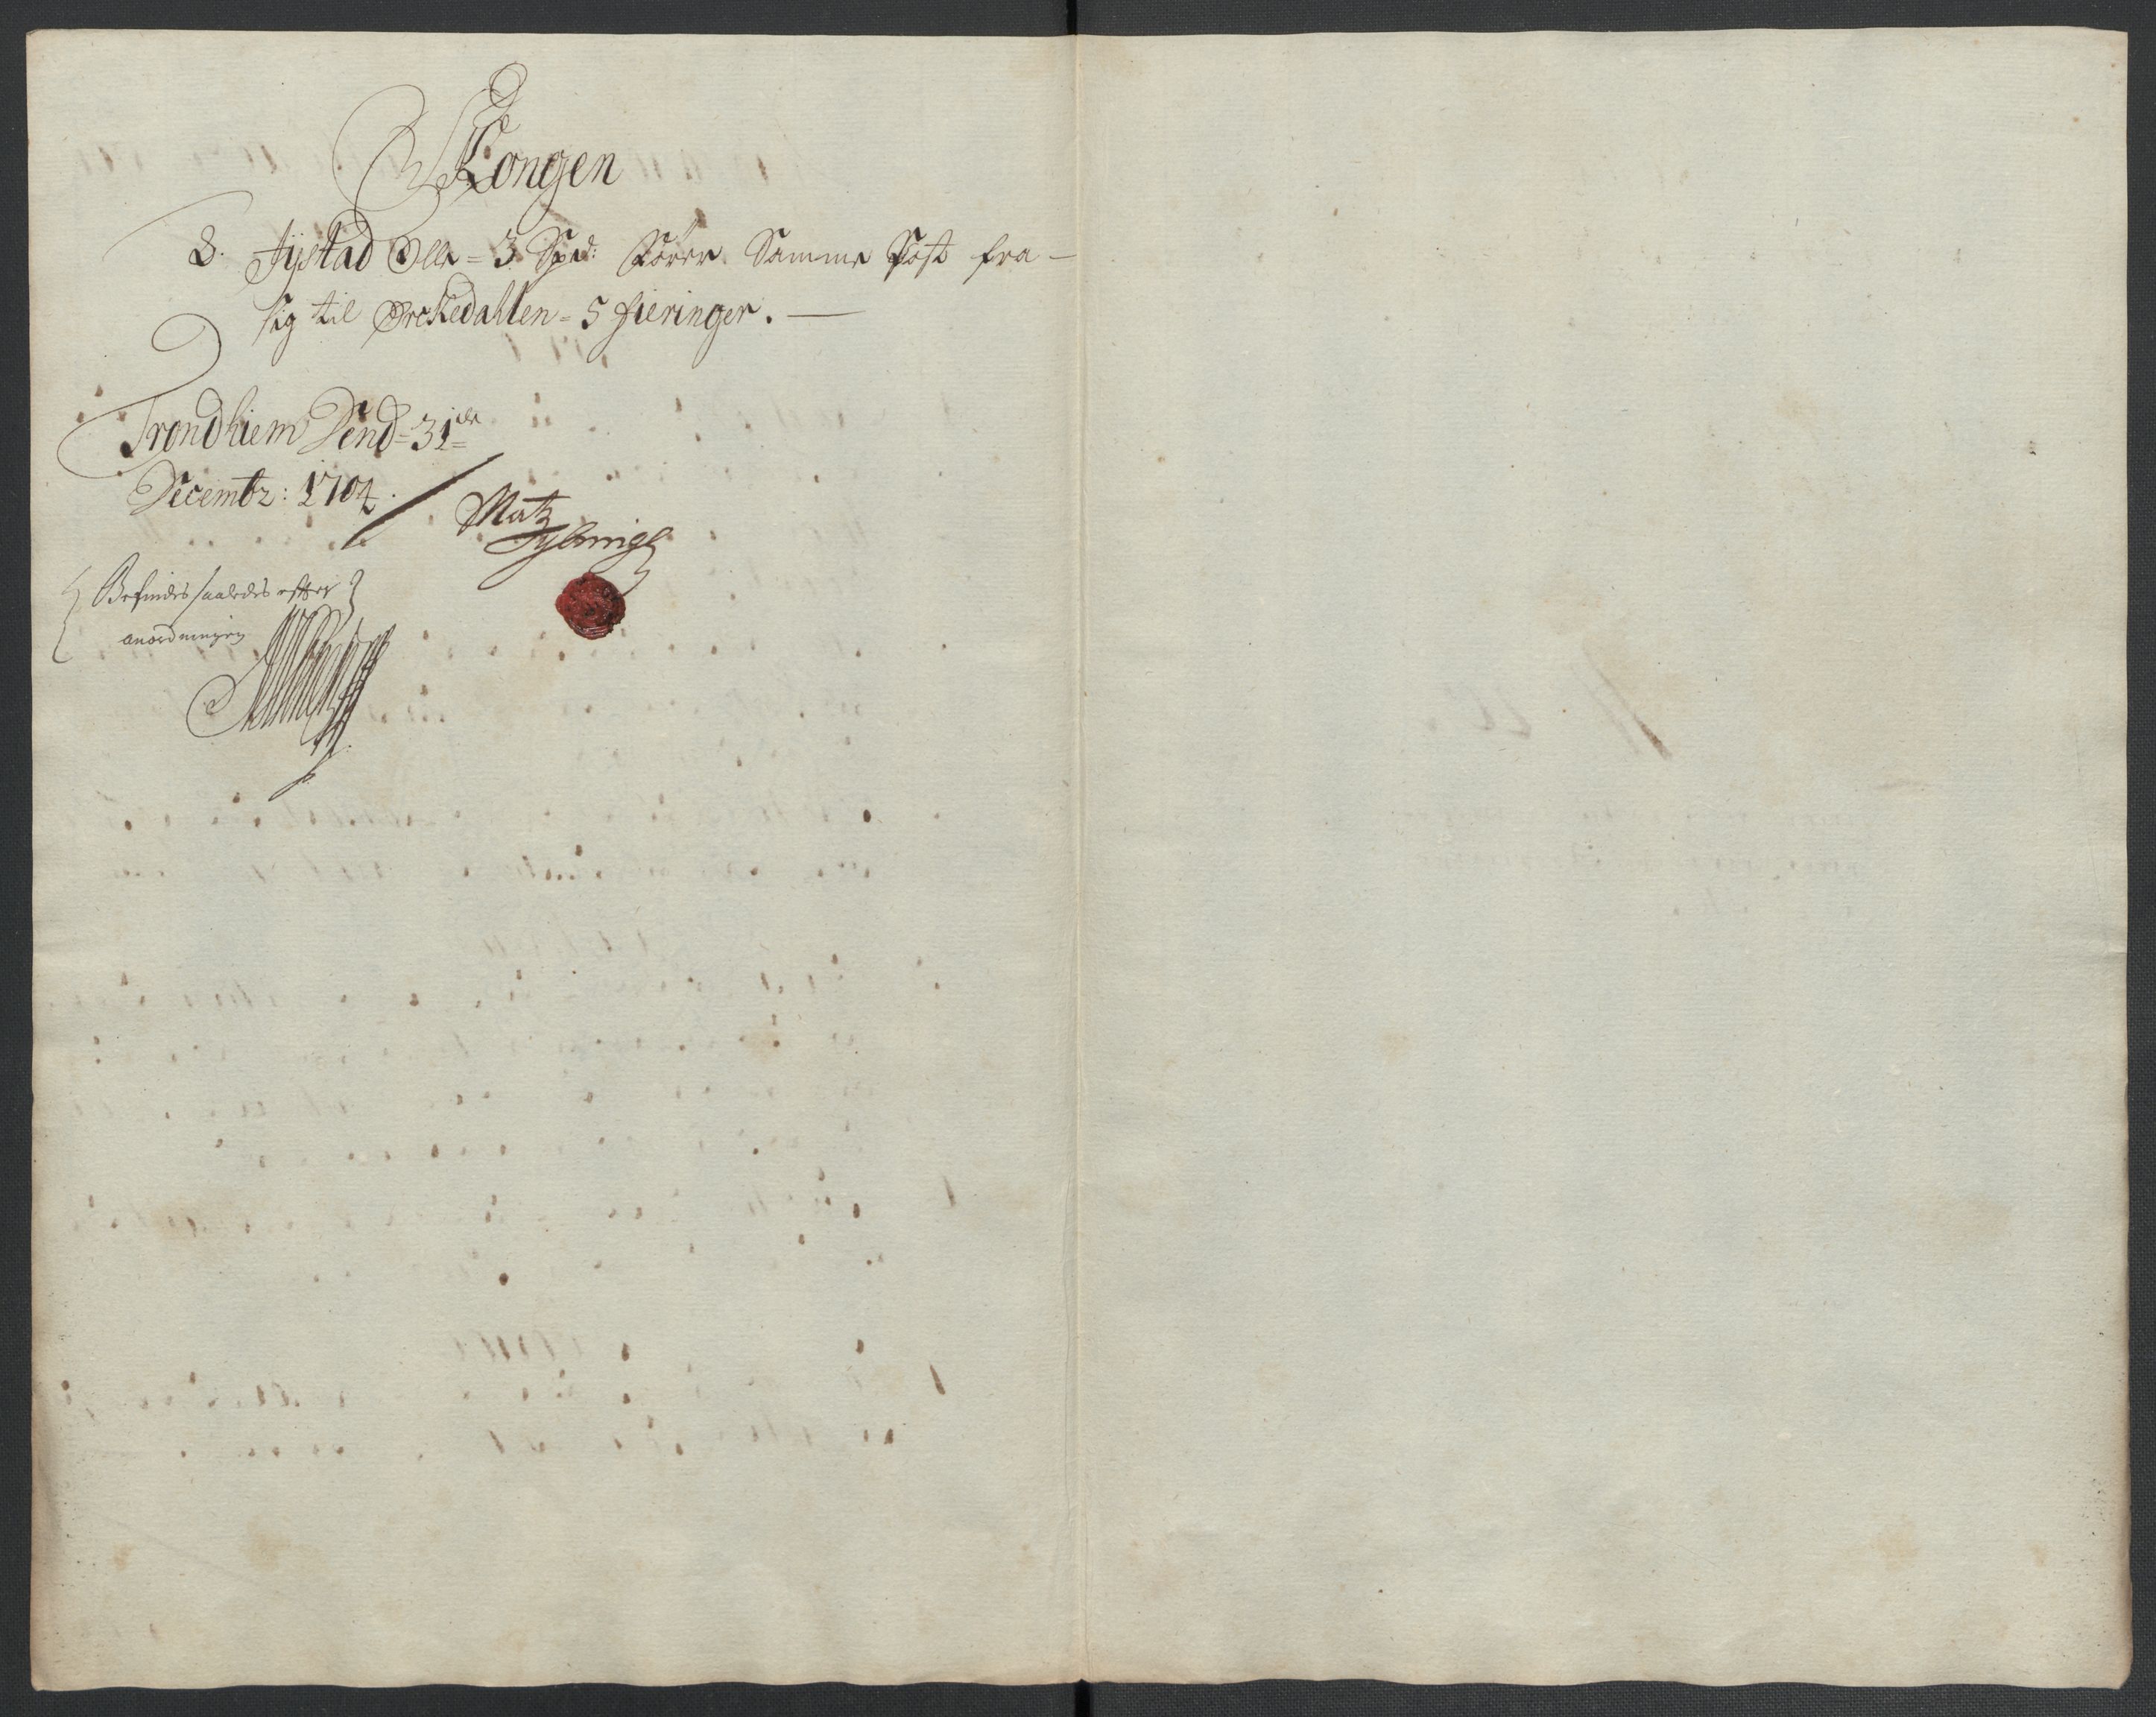 Kongen
8. Tystad Olle = 3 Spd: Fører Samme Post fra -
sig til Orckedahlen = 5 fieringer. —
Trondhiem Dend = 31de
Decembr: 1704.
Matz
Befindes saaledes efter
anordningen